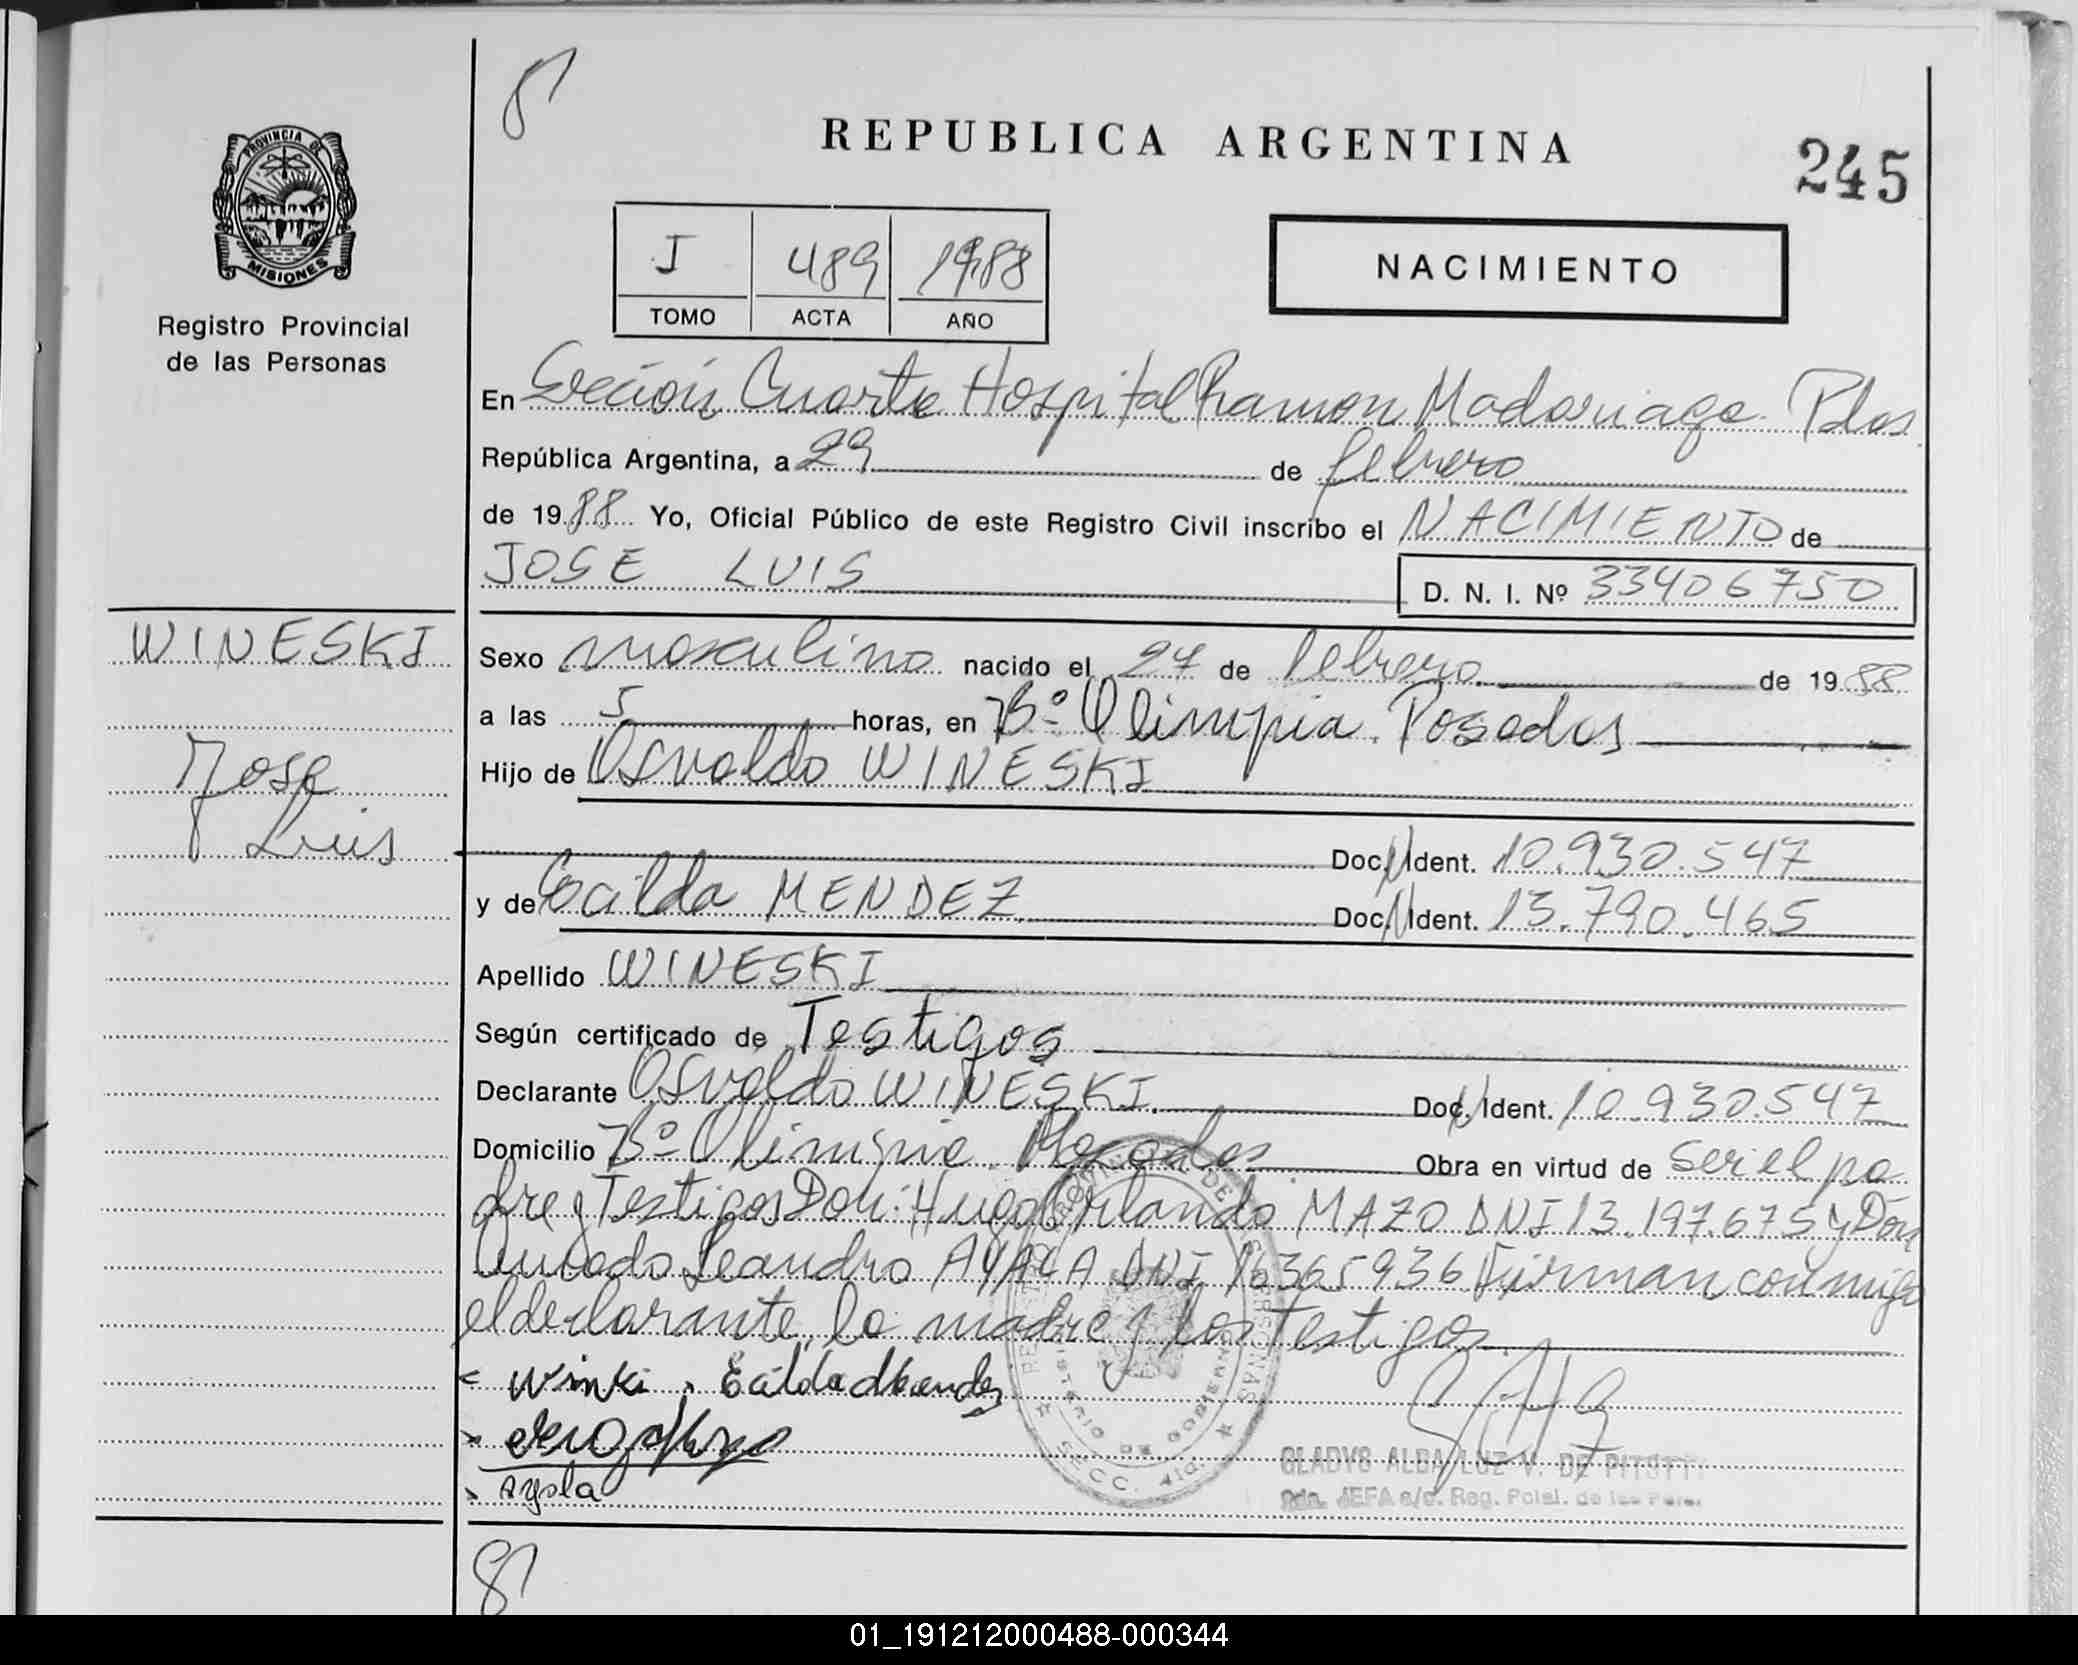 REPUBLICA ARGENTINA
245
PROVINCIA DE
MISIONES
Registro Provincial
de las Personas
J 489 1988
TOMO ACTA AÑO
NACIMIENTO
En Sección Cuarta Hospital Ramon Madariaga Pdas
República Argentina, a 29 de febrero
de 1988 Yo, Oficial Público de este Registro Civil inscribo el NACIMIENTO de
JOSE LUIS D. N. I. Nº 33406750
WINESKI
Jose
Luis
Sexo masculino nacido el 27 de febrero de 1988
a las 5 horas, en Bº Olimpia. Posadas
Hijo de Osvaldo WINESKI
Doc. Ident. 10.930.547
y de Ecilda MENDEZ Doc. Ident. 13.790.465
Apellido WINESKI
Según certificado de Testigos
Declarante Osvaldo WINESKI. Doc. Ident. 10.930.547
Domicilio Bº Olimpia. Posadas Obra en virtud de ser el pa
dre y Testigos Don: Hugo Orlando MAZO DNI 13.197.675 y Don
Leandro AYALA DNI 16365936 Firman conmigo
el declarante, la madre y los Testigos.
Winki. Ecilda Mendez
Ayala
GLADYS ALBA LUZ V. DE
JEFA a/c. Reg. Pcial. de las Pers.
MINISTERIO DE GOBIERNO
SECC. 4ta.
01_191212000488-000344